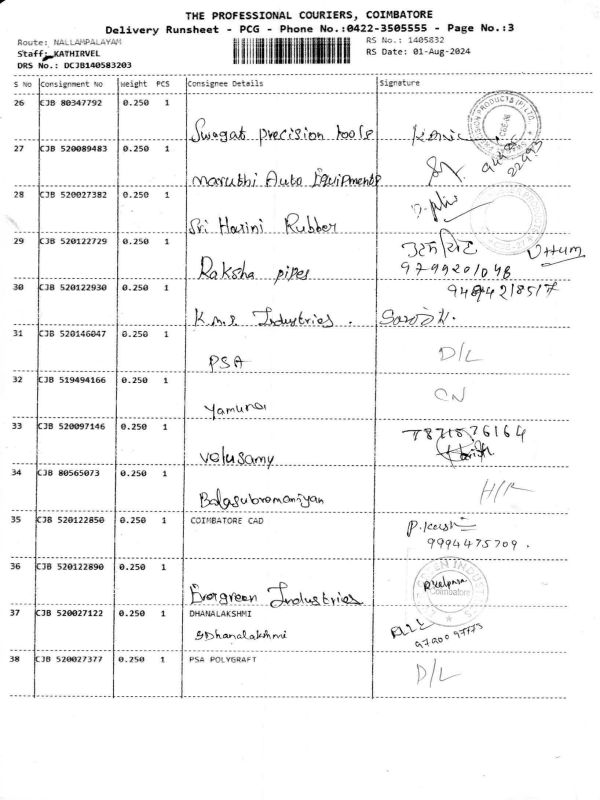 THE PROFESSIONAL COURIERS, COIMBATORE
Delivery Runsheet - PCG - Phone No.:0422-3505555 - Page No.:3
Route: NALLAMPALAYAM RS No.: 1405832
Staff: KATHIRVEL RS Date: 01-Aug-2024
DRS No.: DCJB140583203
S No Consignment No Weight PCS Consignee Details Signature
26 CJB 80347792 0.250 1
Swagat precision tools
27 CJB 520089483 0.250 1
Maruthi Auto Equipments
28 CJB 520027382 0.250 1
Sri Harini Rubber
29 CJB 520122729 0.250 1
Raksha pipes 9799201048
30 CJB 520122930 0.250 1
K.m.s. Industries.
31 CJB 520146047 0.250 1
PSA D/L
32 CJB 519494166 0.250 1 CN
Yamuna
33 CJB 520097146 0.250 1
Velusamy
34 CJB 80565073 0.250 1
Balasubramaniyan
35 CJB 520122850 0.250 1 COIMBATORE CAD
9994475709.
36 CJB 520122890 0.250 1
Evergreen Industries Coimbatore
37 CJB 520027122 0.250 1 DHANALAKSHMI
Dhanalakshmi
38 CJB 520027377 0.250 1 PSA POLYGRAFT D/L